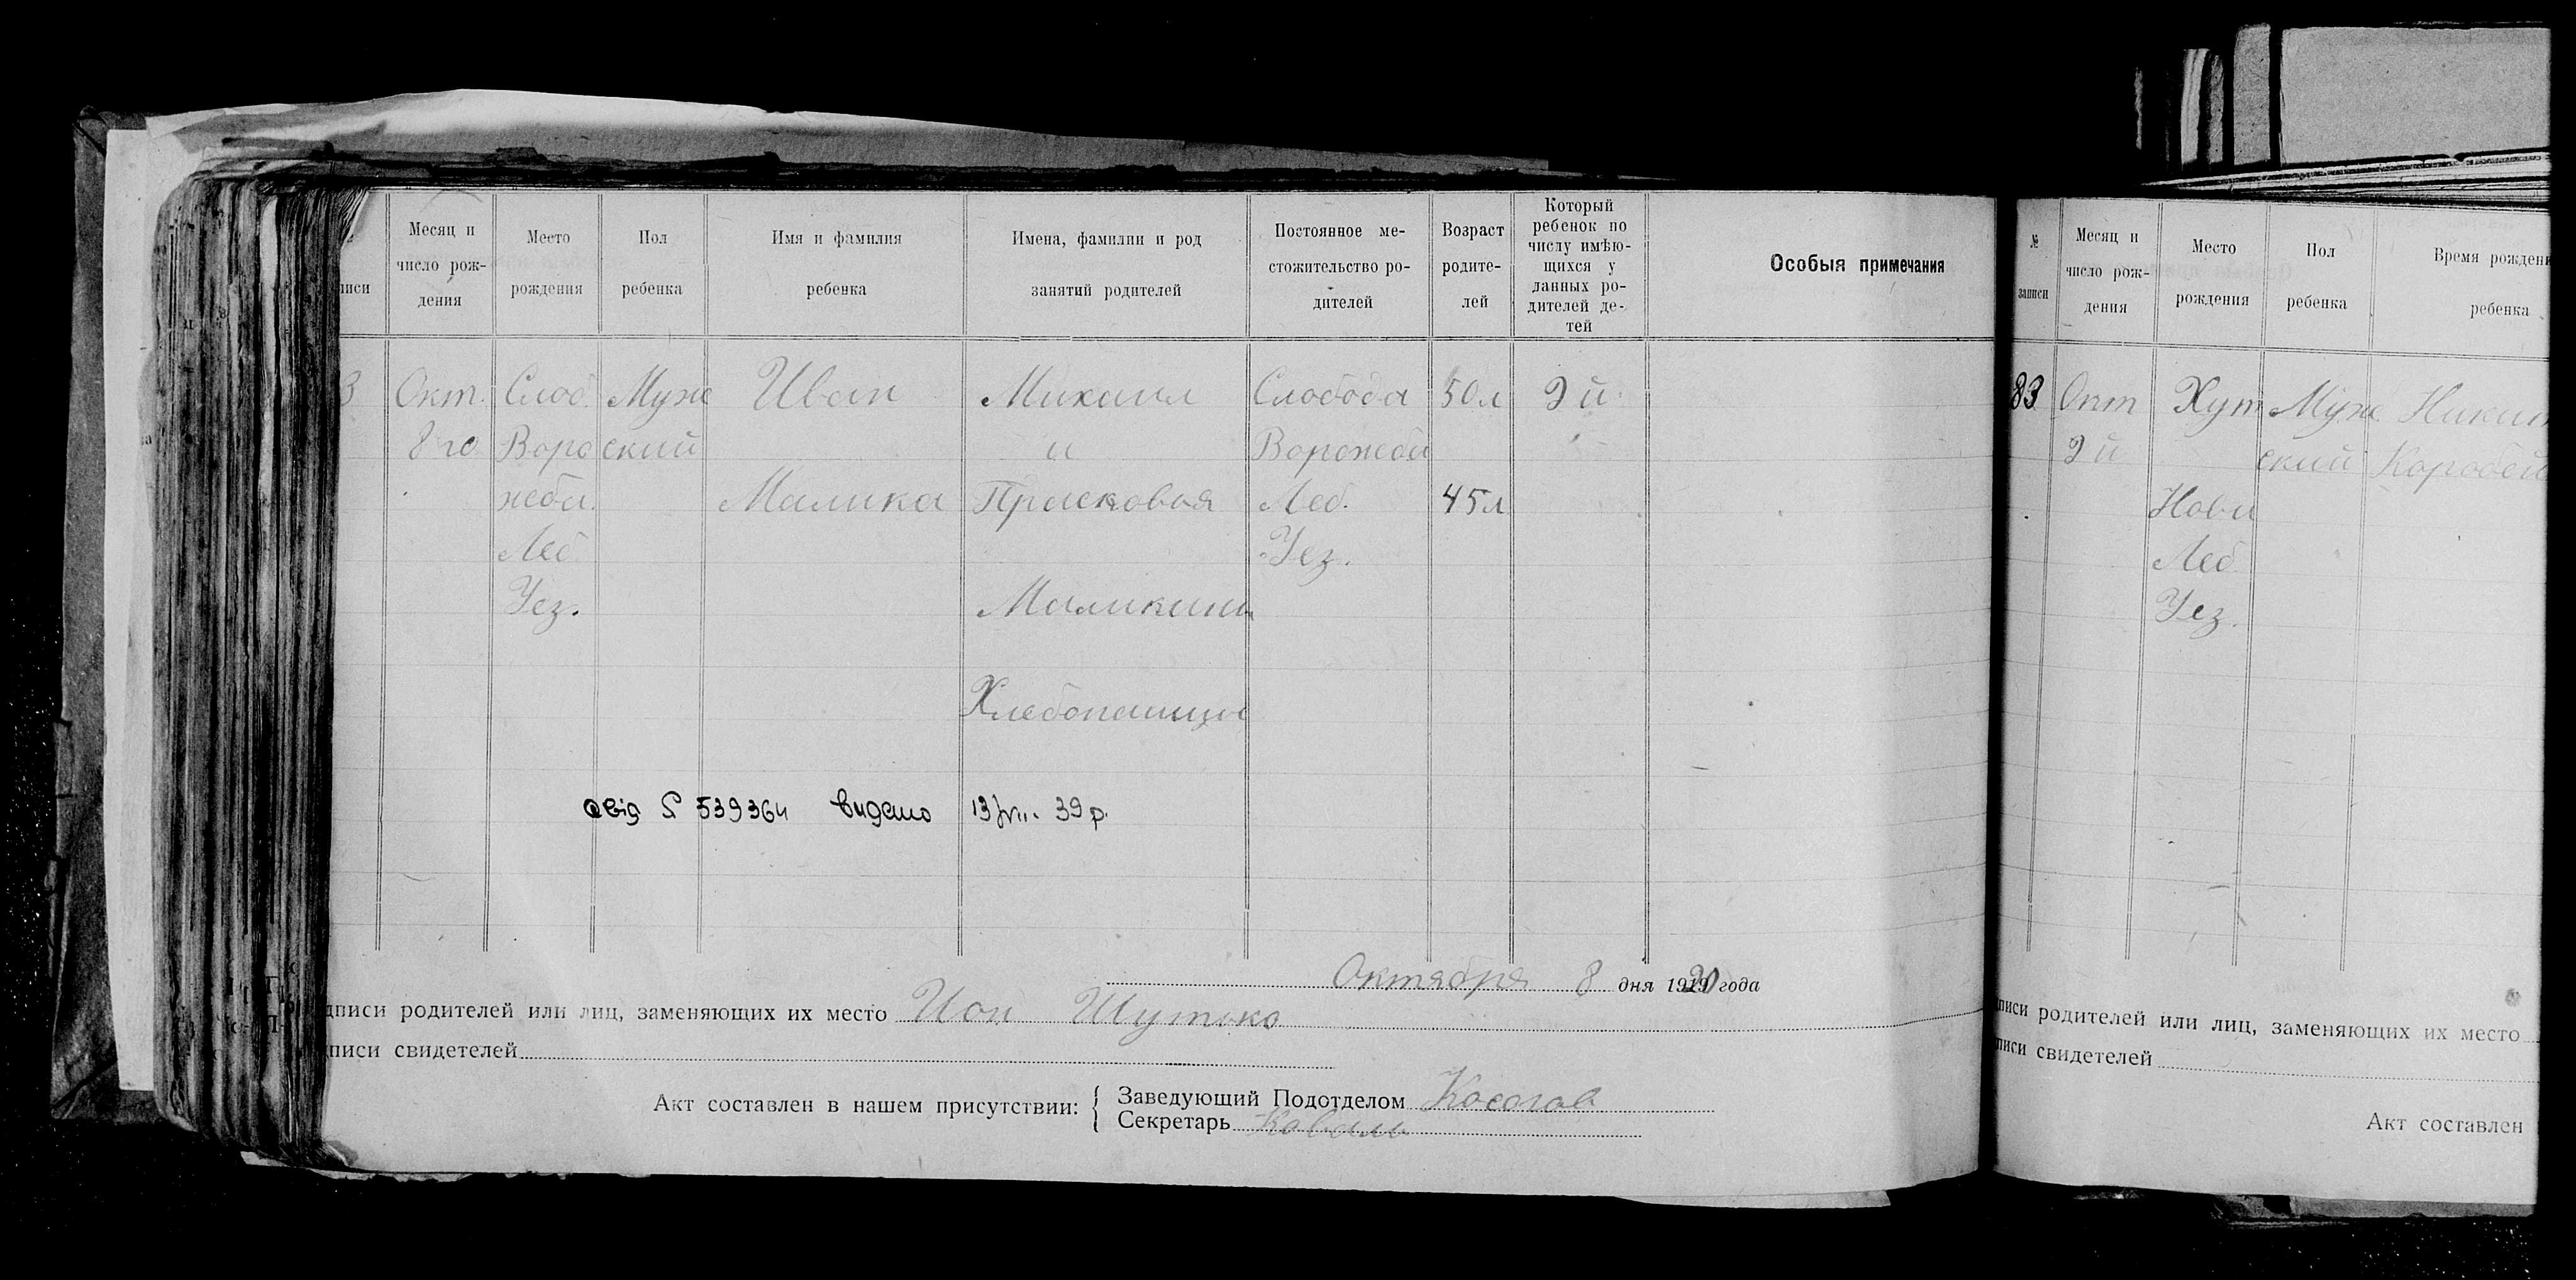 писи
Месяц и
число рож-
дения
Место
рождения
Пол
ребенка
Имя и фамилия
ребенка
Имена, фамилии и род
занятий родителей
Постоянное ме-
стожительство ро-
дителей
Возраст
родите-
лей
Который
ребенок по
числу имѣю-
щихся у
данных ро-
дителей де-
тей
Особыя примечания
3
Окт.
8 го
Слоб.
Воро
жба.
Леб.
Уез.
Муж
ский
Иван
Малика
Михаил
и
Прасковья
Маликины
Хлебопашцы
Слобода
Ворожба
Леб.
Уез.
50 л
45 л
2 й
свід S 539364 видано 13/VII. 39 р.
Октября 8 дня 1920 года
дписи родителей или лиц, заменяющих их место Ион Шутько
писи свидетелей
Акт составлен в нашем присутствии:
Заведующий Подотделом Косогов
Секретарь Коваль
№
записи
Месяц и
число рож-
дения
Место
рождения
Пол
ребенка
Время рождени
ребенка
83
Окт
2 й
Хут
Нови
Леб
Уез.
Муж
ский
Никит
Коробей
писи родителей или лиц, заменяющих их место
писи свидетелей
Акт составлен